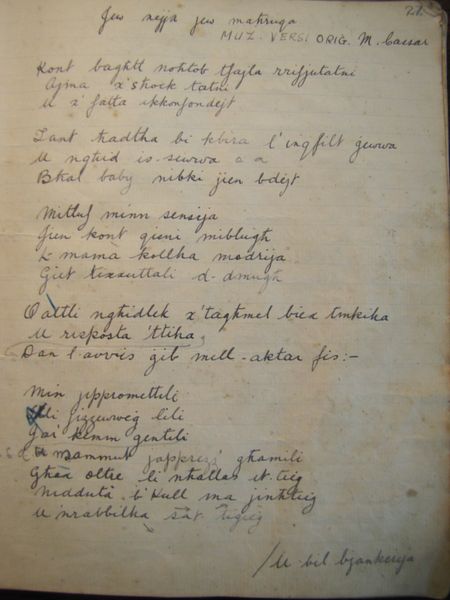 Jew nejja jew mahruqa
27.
MUZ. VERSI ORIG. M. Caesar
Kont baghtt nohtob tfajla rrifjutatni
Ajma x'shock tatni
U x' fatta ikkonfondejt
Tant hadtha bi kbira l'inqfilt gewwa
U nghid is-sewwa a a
Bhal baby nibki jien bdejt
Mitluf minn sensija
Jien kont qieni miblugh
L mama kollha modrija
Giet tixxuttali d-dmugh
Qattli nghidlek x'taghmel biex tmkiha
U risposta 'ttiha
Dan l'avvis gib mill-aktar fis:-
Min jippromettili
Illi jizzewweg lili
Gar kemm gentili
U mammut japprezz' ghamili
Ghax oltre li nhallas it-tieg
Nidduta b'kull ma jinhtieg
U nrabbilha sat-tigieg
/U bil bjankerija